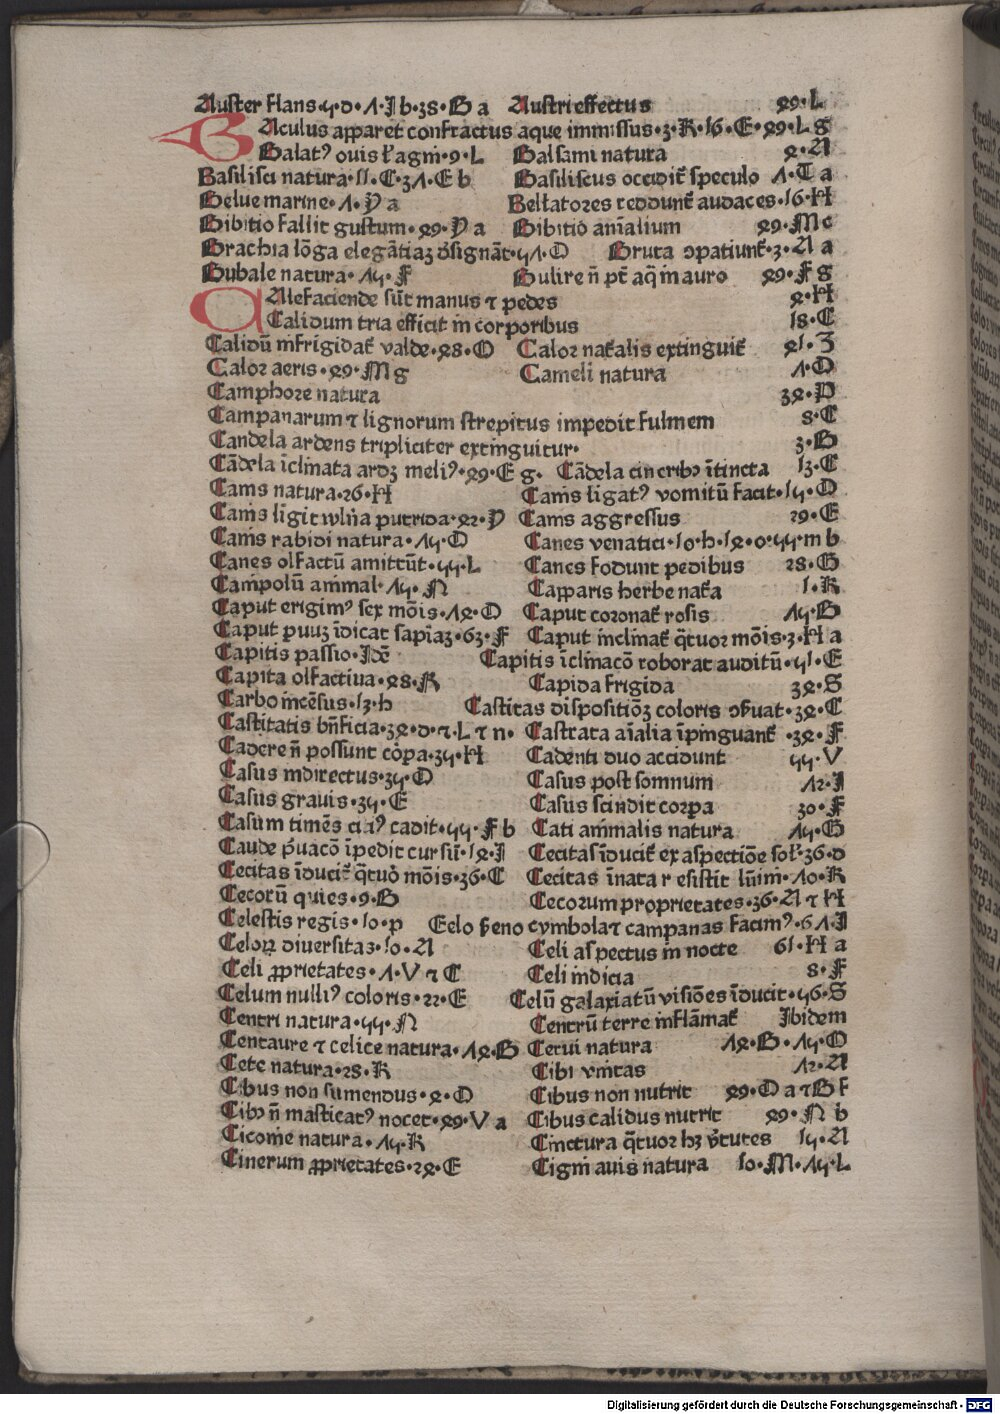 Auster flans·ꝗ·d·Λ·I b·38·B a Austri effectus 99·L
BAculus apparet confractus aque immissus·3·R·16·E·99·L g
Balatꝰ ouis ł agni·9·L Balsami natura 2·A
Basilisci natura·11·C·3Λ·E b Basiliscus occidit speculo Λ·T a
Belue marine·Λ·Y a Bellatores reddunt᷒ audaces·16·H
Bibitio fallit gustum·99·Y a Bibitio aīalium 99·M c
Brachia lōga elegātiaꝫ dsignāt·ꝗΛ·D Bruta ꝯpatiunt᷒·3·A a
Bubale natura·Λꝗ·F Bulire ñ pt̄ aq̄ in auro 99·F g
CAlefaciende sūt manus ⁊ pedes 2·H
Calidum tria efficit in corporibus 18·C
Calidū infrigidat᷒ valde·28·O Calor nat᷒alis extinguit᷒ 21·Z
Calor aeris·99·M g Cameli natura Λ·D
Camphore natura 32·P
Campanarum ⁊ lignorum strepitus impedit fulmem 8·C
Candela ardens tripliciter extinguitur· 3·B
Cādela īclinata ardꝫ meliꝰ·99·E g· Cādela cineribꝫ ītincta 13·C
Canis natura·26·H Canis ligatꝰ vomitū facit·1ꝗ·O
Canis lingit vulnꝰa putrida·22·Y Canis aggressus 29·E
Canis rabidi natura·Λꝗ·O Canes venatici·10·h·12·o·ꝗꝗ·m b
Canes olfactū amittūt·ꝗꝗ·L Canes fodunt pedibus 28·G
Campolū animal·Λꝗ·N Capparis herbe nat᷒a 1·R
Caput erigimꝰ sex mōis·Λ2·O Caput coronat᷒ rosis Λꝗ·B
Caput puuꝫ īdicat sapiaꝫ·63·F Caput inclinat᷒ q̄tuor mōis·3·H a
Capitis passio·Idē Capitis īclinacō roborat auditū·ꝗ1·E
Capita olfactiua·28·R Capida frigida 32·S
Carbo incēsus·13·h Castitas dispositiōꝫ coloris ꝯẜuat·32·C
Castitatis bn̄ficia·32·d·⁊·L ⁊ n· Castrata aīalia īpinguant᷒·32·F
Cadere ñ possunt cōpa·3ꝗ·H Cadenti duo accidunt ꝗꝗ·V
Casus indirectus·3ꝗ·O Casus post somnum Λ2·I
Casus grauis·3ꝗ·E Casus scindit corpa 30·F
Casum timēs ciꝰ cadit·ꝗꝗ·F b Cati animalis natura Λꝗ·G
Caude puacō īpedit cursū·12·I Cecitas īducit᷒ ex aspectiōe sol᷒·36·d
Cecitas īducit᷒ q̄tuō mōis·36·C Cecitas īnata resistit lūini·Λ0·R
Cecorū quies·9·B Cecorum proprietates·36·A ⁊ H
Celestis regis·10·p Celo ẜeno cymbola ⁊ campanas facimꝰ·6Λ·I
Celoꝝ diuersitas·10·A Celi aspectus in nocte 61·H a
Celi ꝓprietates·Λ·V ⁊ C Celi indicia 8·F
Celum nulliꝰ coloris·22·E Celū galaxiatū visiōes īducit·ꝗ6·S
Centri natura·ꝗꝗ·N Centrū terre inflāmat᷒ Ibidem
Centaure ⁊ celice natura·Λ2·B Cerui natura Λ2·B·Λꝗ·O
Cete natura·28·R Cibi vnitas Λ2·A
Cibus non sumendus·2·O Cibus non nutrit 99·D a ⁊ B f
Cibꝫ ñ masticatꝰ nocet·99·V a Cibus calidus nutrit 99·N b
Ciconie natura·Λꝗ·R Cinctura q̄tuor hꝫ v᷒tutes 1ꝗ·A
Cinerum ꝓprietates·22·E Cigni auis natura 10·M·Λꝗ·L
Digitalisierung gefördert durch die Deutsche Forschungsgemeinschaft - DFG